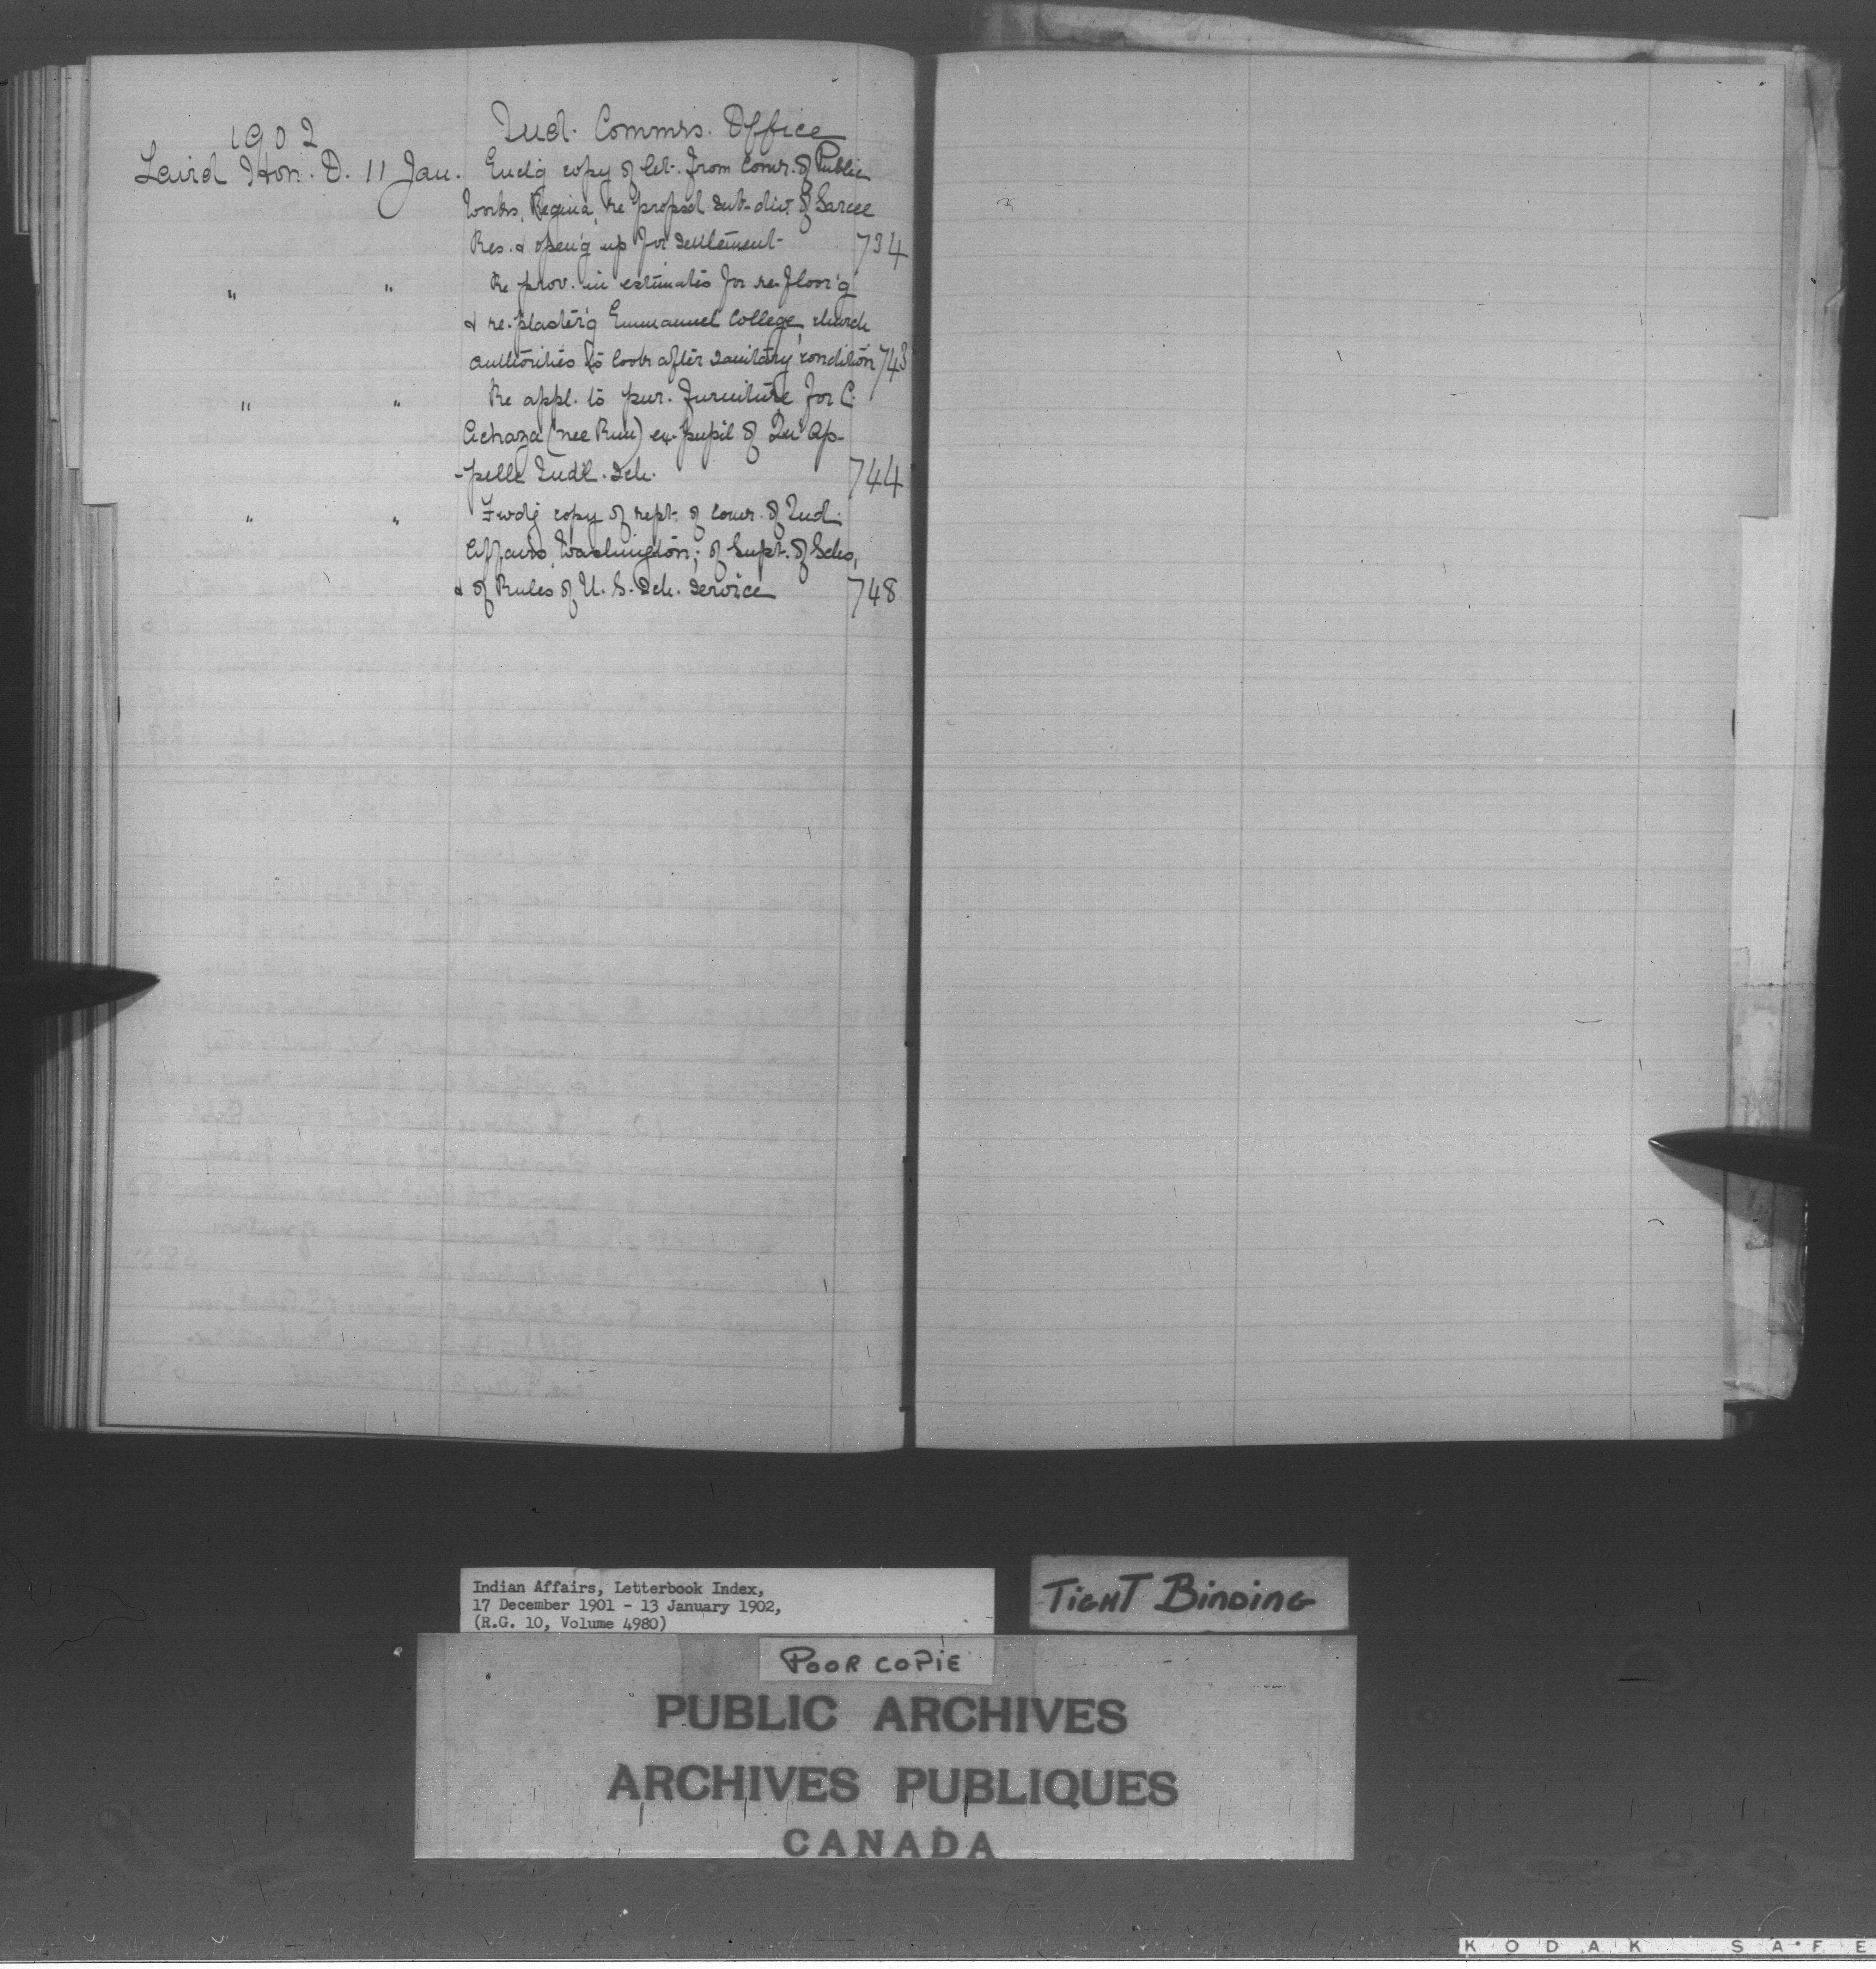 1902
Ind. Commrs. Office
Laird Hon. D. 11 Jan. Enclg copy of let. from Comr. of Public
Works, Regina, re propsd sub-div. of Sarcee
Res. & open'g up for settlement 734
" " Re prov. in estimates for re-floor'g
& re-plaster'g Emmanuel College, church
authorities to look after sanitary condition 743
" " Re appl. to pur. furniture for C.
(nee ) ex-pupil of Qu'Ap-
-pelle Indl. Sch. 744
" " Fwdg copy of rept. of Comr. of Ind.
Affairs, Washington; of Supt. of Schs,
& of Rules of U. S. Sch. Service 748
Indian Affairs, Letterbook Index,
17 December 1901 - 13 January 1902,
(R.G. 10, Volume 4980)
TIGHT BINDING
POOR COPIE
PUBLIC ARCHIVES
ARCHIVES PUBLIQUES
CANADA
KODAK SAFE